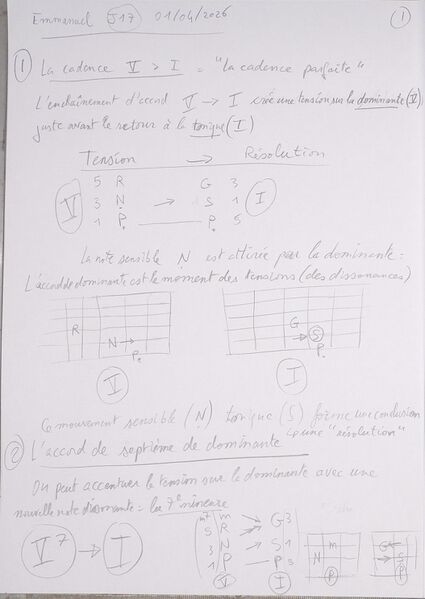 Emmanuel J17 01/04/2026 1
1 La cadence V > I = "la cadence parfaite"
L'enchaînement d'accord V → I crée une tension sur la dominante (V)
juste avant le retour à la tonique (I)
Tension → Résolution
5 R G 3
V 3 N → S 1 I
1 P P 5
La note sensible N est attirée par la dominante :
L'accord de dominante est le moment des tensions (des dissonances)
R G
N → → S
P P
V I
Ce mouvement sensible (N) tonique (S) forme une conclusion
↳ une "résolution"
2 L'accord de septième de dominante
On peut accentuer la tension sur la dominante avec une
nouvelle note dissonante = la 7e mineure
V7 → I
m7 m → G 3
5 R
3 N → S 1
1 P → P 5
V I
N m G
P